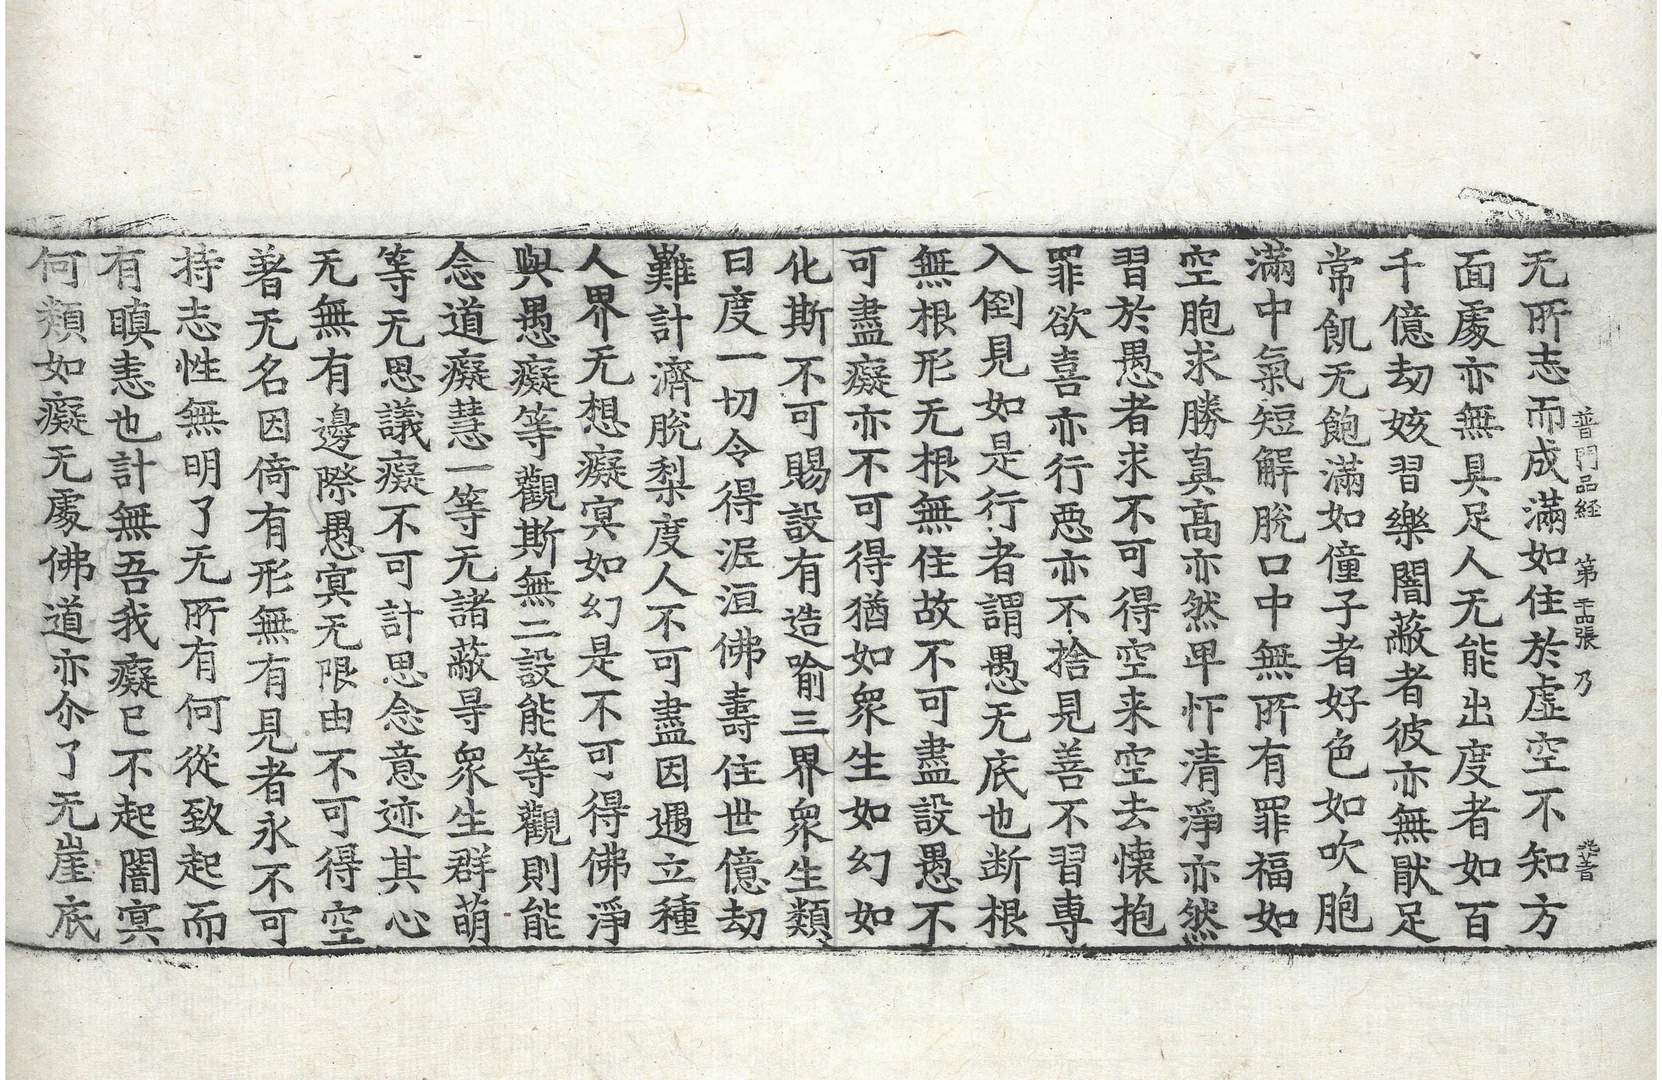 普門品経 第二十四張 乃
无所志而成滿如住於虛空不知方
面處亦無具足人无能出度者如百
千億劫姟習樂闇蔽者彼亦無猒足
常飢无飽滿如僮子者好色如吹胞
滿中氣短解脫口中無所有罪福如
空胞求勝真高亦然卑怍清淨亦然
習於愚者求不可得空来空去懐抱
罪欲喜亦行惡亦不捨見善不習專
入倒見如是行者謂愚无底也断根
無根形无根無住故不可盡設愚不
可盡癡亦不可得猶如衆生如幻如
化斯不可賜設有造喻三界衆生類
日度一切令得泥洹佛壽住世億劫
難計濟脫梨度人不可盡因遇立種
人界无想癡冥如幻是不可得佛淨
與愚癡等觀斯無二設能等觀則能
念道癡慧一等无諸蔽㝵衆生群萌
等无思議癡不可計思念意迹其心
无無有邊際愚冥无限由不可得空
著无名因倚有形無有見者永不可
持志性無明了无所有何從致起而
有瞋恚也計無吾我癡已不起闇冥
何類如癡无處佛道亦尒了无崖底